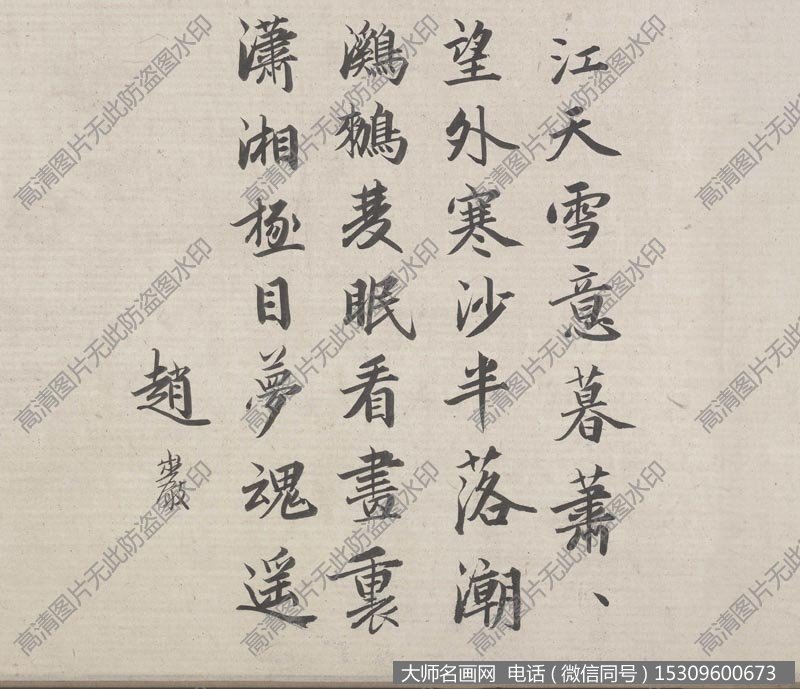 江天雪意暮蕭、
望外寒沙半落潮
鸂鶒眠看畫裏
瀟湘極目夢魂遥
趙巖
高清图片无此防盗图水印
大师名画网 电话（微信同号）15309600673